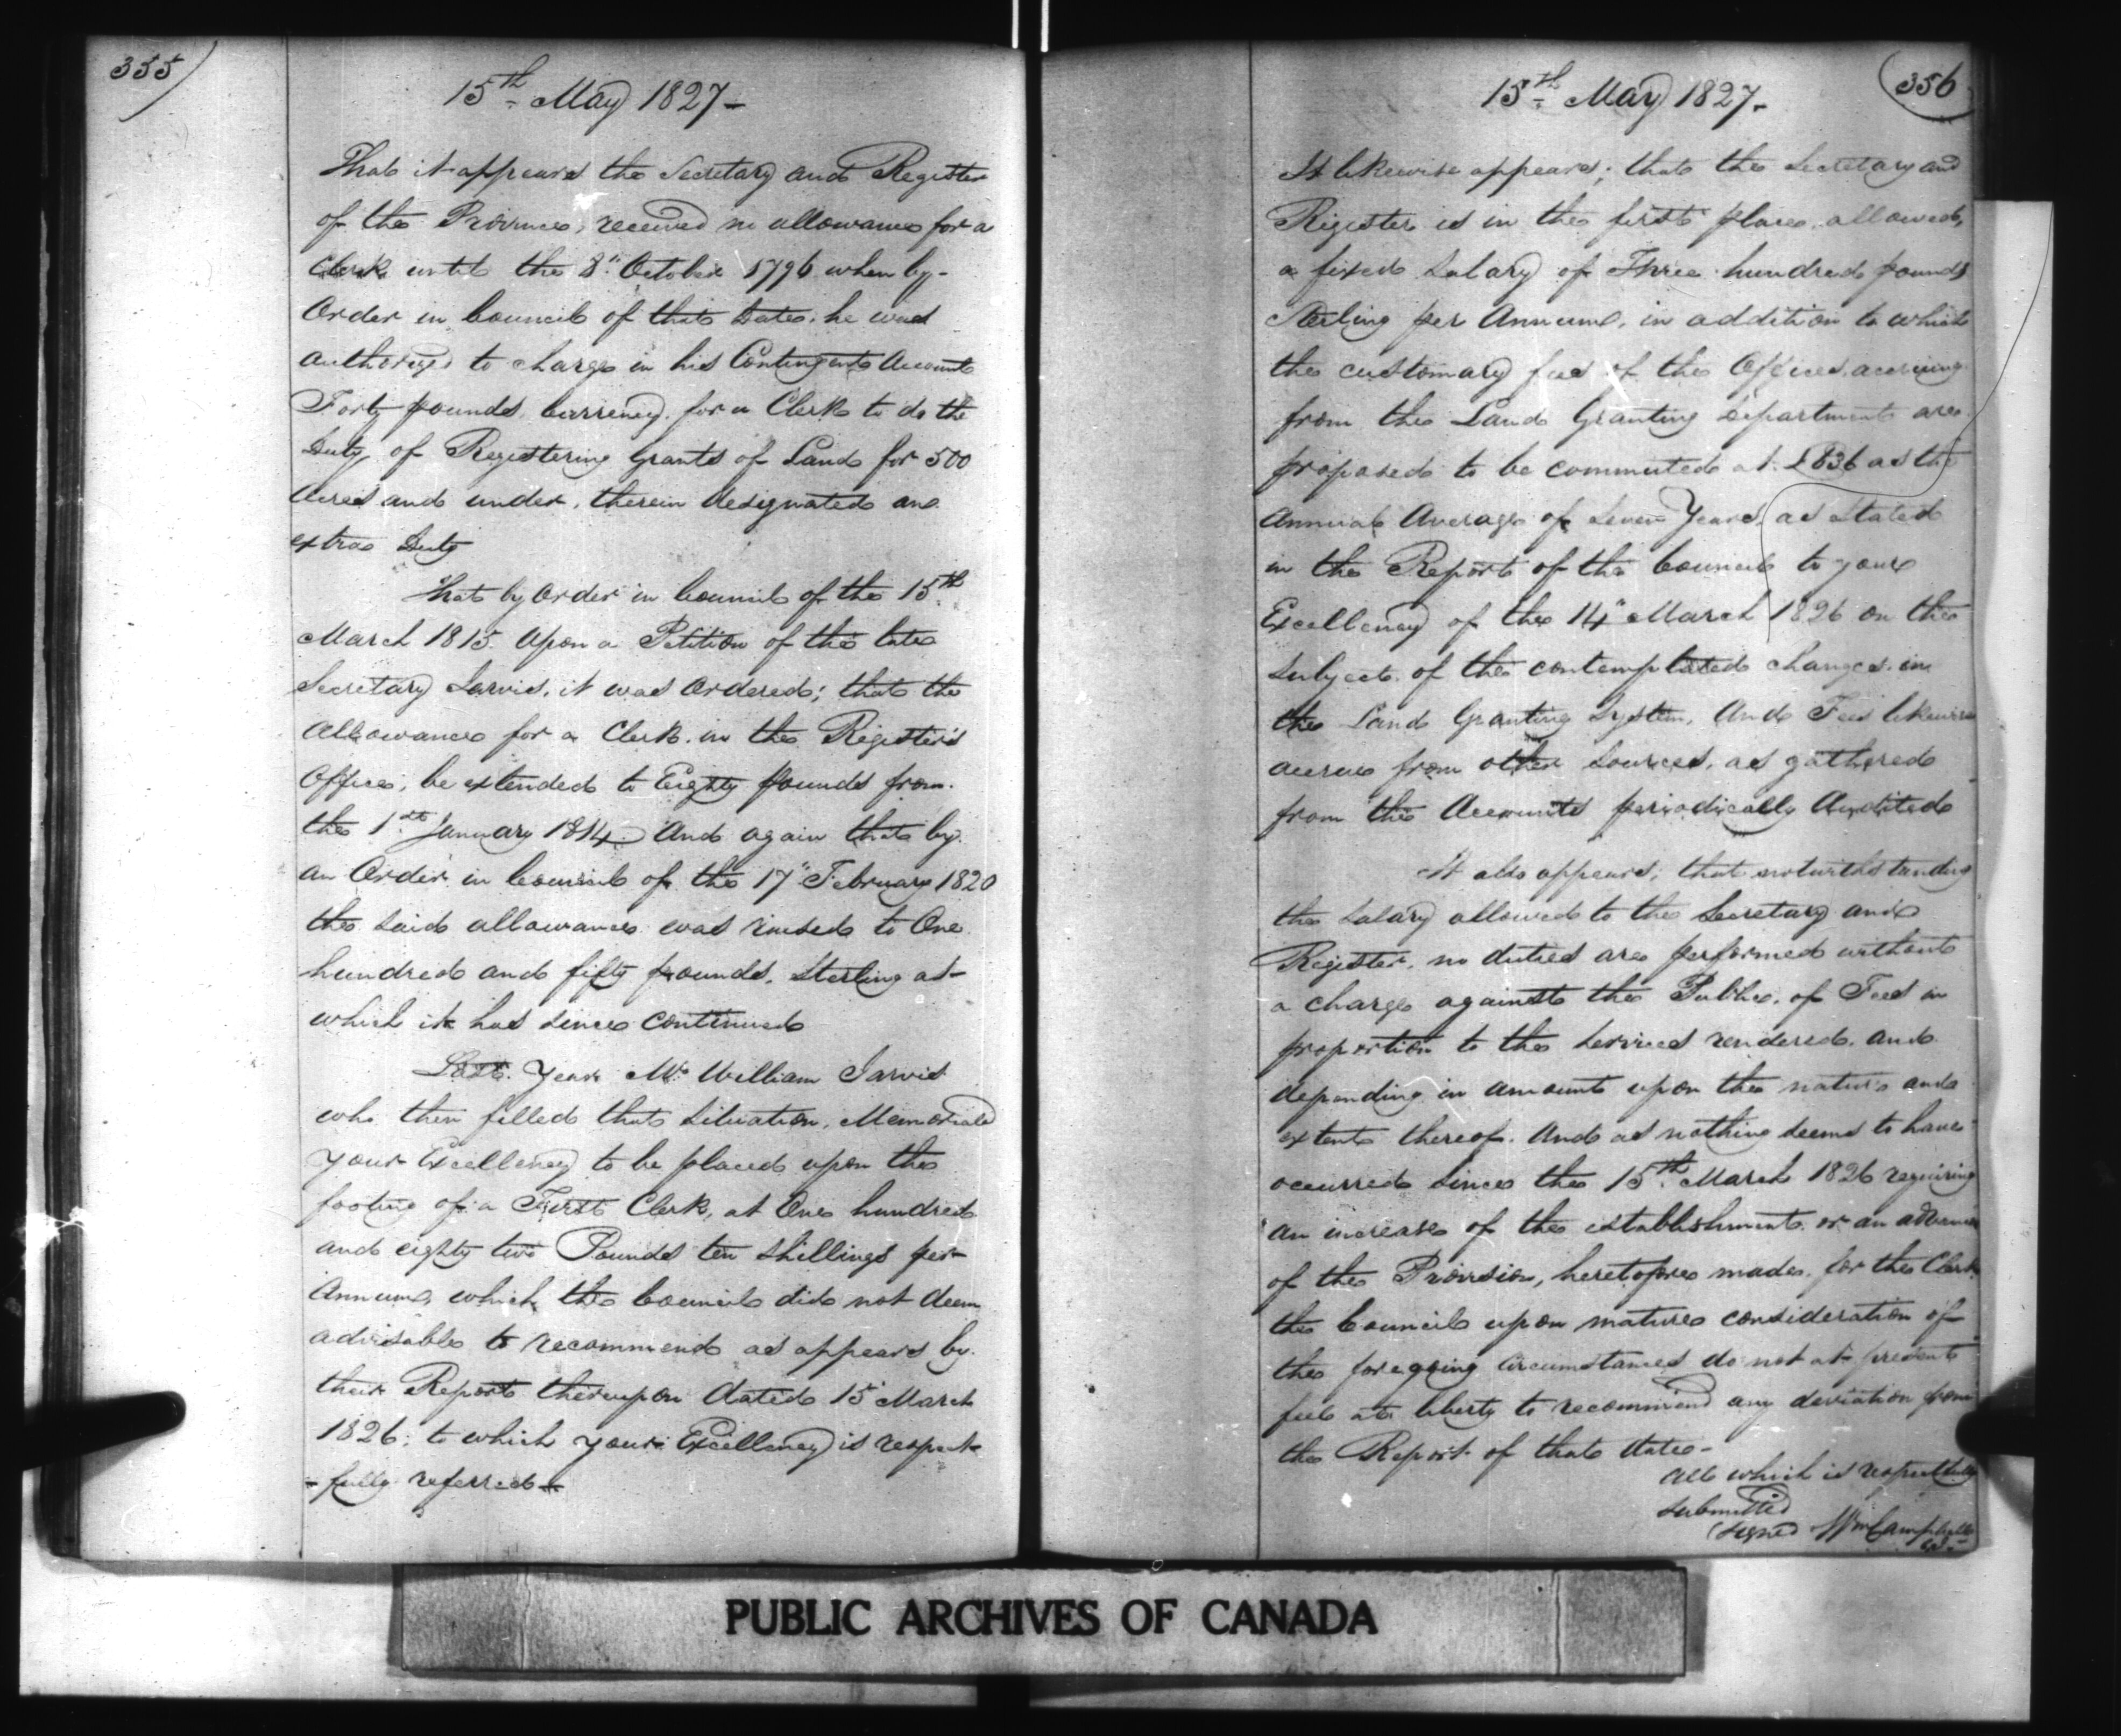 355
15th May 1827-
That it appears the Secretary and Register
of the Province, received no allowance for a
Clerk until the 8th October 1796 when by-
Order in Council of that Date, he was
authorized to charge in his Contingent Account
Forty pounds Currency, for a Clerk to do the
Duty of Registering Grants of Land for 500
Acres and under, therein designated an
extra Duty
That by Order in Council of the 15th
March 1815 Upon a Petition of the late
Secretary Jarvis, it was Ordered; that the
Allowance for a Clerk in the Register's
Office, be extended to Eighty pounds from
the 1st January 1814. And again that by
an Order in Council of the 17th February 1820
the said allowance was raised to One
hundred and fifty pounds, Sterling at-
which it has since continued
Last Year Mr William Jarvis
who then filled that situation, Memorialed
your Excellency to be placed upon the
footing of a First Clerk, at One hundred
and eighty two Pounds ten shillings per
Annum, which the Council did not deem
advisable to recommend as appears by
their Report thereupon dated 15 March
1826; to which your Excellency is respect
-fully referred-
356
15th May 1827-
It likewise appears; that the Secretary and
Register is in the first place, allowed,
a fixed Salary of Three hundred pounds
Sterling per Annum, in addition to which
the customary fees of the Office, accruing
from the Land Granting Department are
proposed to be commuted at £836 as the
Annual Average of Seven Years, as Stated
in the Report of the Council to your
Excellency of the 14th March 1826 on the
subject of the contemplated changes in
the Land Granting System, And Fees likewise
accrue from other sources, as gathered
from the Accounts periodically Audited
It also appears, that notwithstanding
the Salary allowed to the Secretary and
Register, no duties are performed without
a charge against the Public, of Fees in
proportion to the Services rendered, and
depending in amount upon the nature and
extent thereof. And as nothing seems to have
occurred since the 15th March 1826 requiring
an increase of the establishment or an advance
of the Provision, heretofore made, for the Clerk
the Council upon mature consideration of
the foregoing Circumstances do not at present
feel at liberty to recommend any deviation from
the Report of that date-
All which is respectfully
submitted
(signed Wm Campbell
PUBLIC ARCHIVES OF CANADA